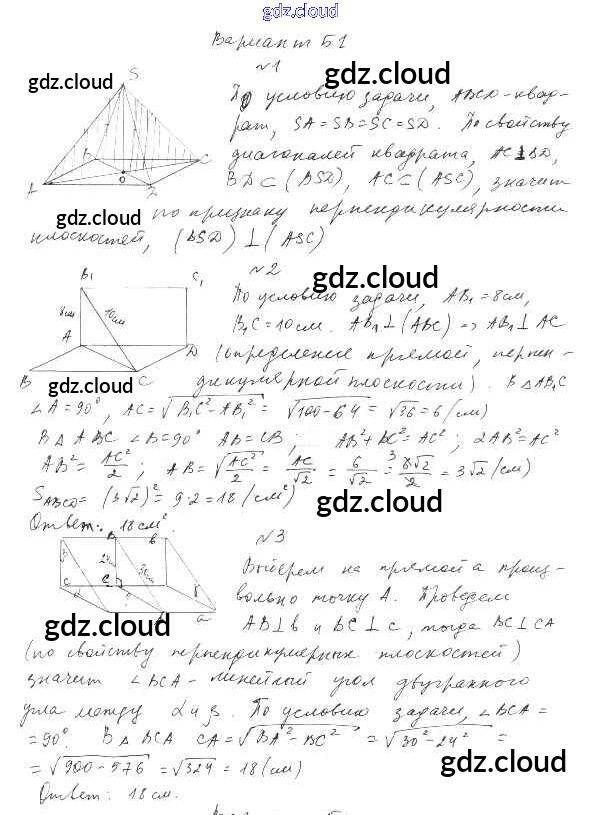 gdz.cloud
Вариант Б1
№1
gdz.cloud gdz.cloud
S B C A D O
По условию задачи, ABCD-квад-
рат, SA=SB=SC=SD. По свойству
диагоналей квадрата, AC⊥BD,
BD⊂(BSD), AC⊂(ASC), значит
gdz.cloud
по признаку перпендикулярности
плоскостей, (BSD)⊥(ASC)
№2
gdz.cloud
B₁ C₁ 8см 10см A D B C
По условию задачи, AB₁=8см,
B₁C=10см. AB₁⊥(ABC) => AB₁⊥AC
(определение прямой, перпен-
gdz.cloud
дикулярной плоскости). В △AB₁C
∠A=90°, AC=√B₁C²-AB₁² = √100-64 = √36=6 (см)
В △ABC ∠B=90° AB=CB; AB²+BC²=AC²; 2AB²=AC²
AB²=AC²/2; AB=√AC²/2 = AC/√2 = 6/√2 = 6√2/2 = 3√2 (см)
S ABCD = (3√2)²=9·2=18 (см²)
gdz.cloud
Ответ: 18 см².
№3
β B b 24см 30см c C ? a
Выберем на прямой a произ-
gdz.cloud
вольно точку A. Проведем
gdz.cloud
AB⊥b и BC⊥c, тогда BC⊥CA
(по свойству перпендикулярных плоскостей)
gdz.cloud
значит ∠BCA-линейный угол двугранного
угла между α и β. По условию задачи, ∠BCA=
gdz.cloud
=90°. В △BCA CA=√BA²-BC² = √30²-24² =
=√900-576 =√324 = 18 (см)
gdz.cloud
Ответ: 18 см.